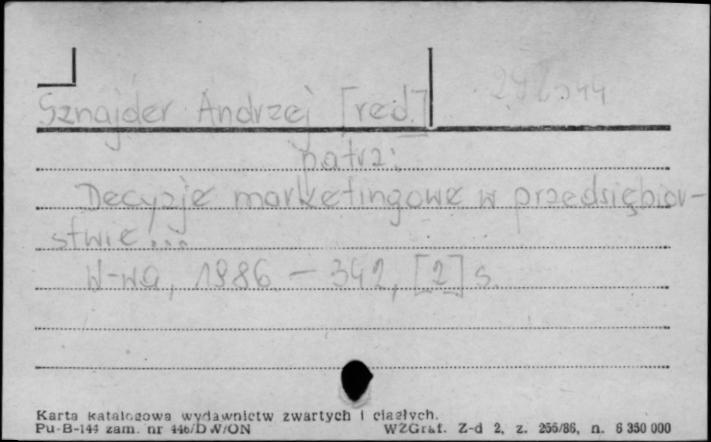 Sznajder Andrzej [red.]
patrz:
Decyzje marketingowe w przedsiębior-
stwie...
W-wa, 1986 - 342, [2] s.
Karta katalogowa wydawnictw zwartych i ciągłych.
Pu-B-144 zam. nr 446/D W/ON WZGraf. Z-d 2, z. 256/86, n. 6 350 000